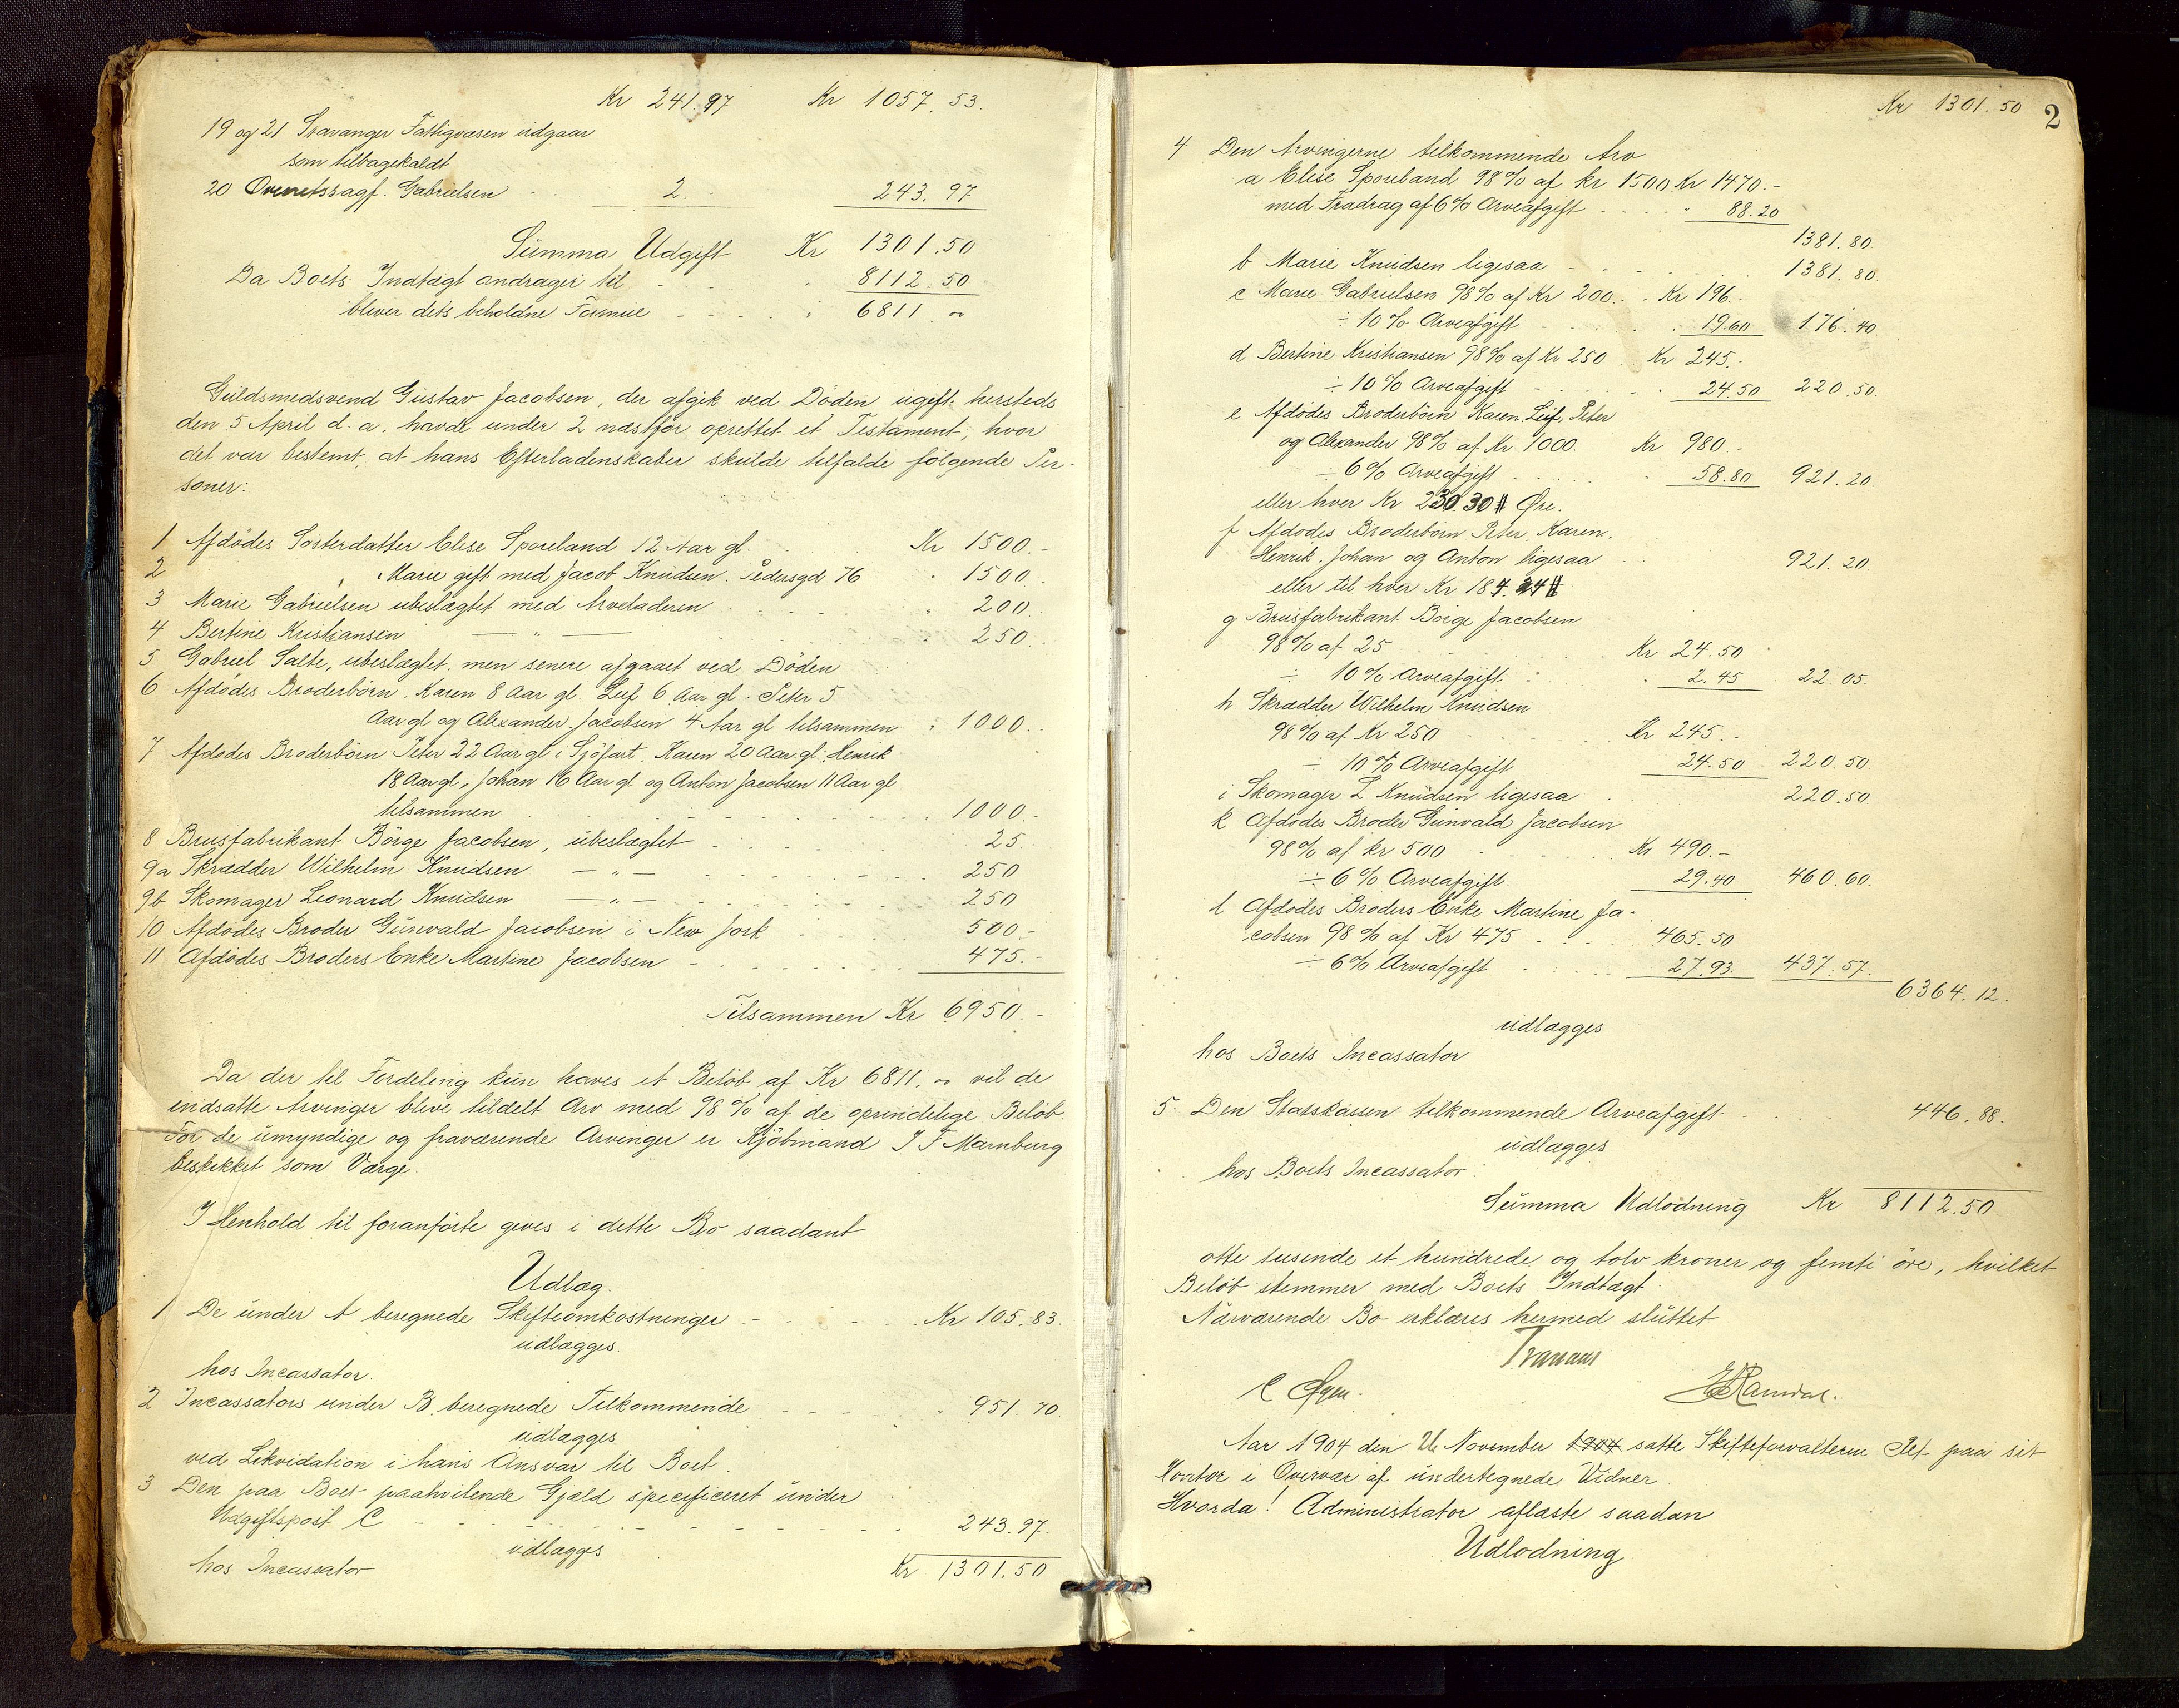 Kr 241.97 Kr 1057.53.
19 og 21 Stavanger Fattigvæsen udgaar
som tilbagekaldt
20 Overretssagf. Gabrielsen . . 2. 243.97
Summa Udgift Kr 1301.50
Da Boets Indtægt andrager til 8112.50
bliver dets beholdne Formue 6811.„
Guldsmedsvend Gustav Jacobsen, der afgik ved Döden ugift hersteds
den 5 April d. a. havde under 2 næstfør oprettet et Testament, hvor
det var bestemt, at hans Efterladenskaber skulde tilfalde følgende Per-
soner:
1 Afdödes Søsterdatter Elise Sporeland 12 Aar gl. Kr 1500.-
2 „ Marie gift med Jacob Knudsen. Pedersgd 76 „ 1500.
3 Marie Gabrielsen ubeslægtet med Arveladeren 200.
4 Bertine Kristiansen — „ — 250.
5 Gabriel Salte, ubeslægtet, men senere afgaaet ved Döden
6 Afdödes Broderbörn. Karen 8 Aar gl. Leif 6 Aar gl. Peter 5
Aar gl og Alexander Jacobsen 4 Aar gl tilsammen „ 1000.
7 Afdödes Broderbörn Peter 22 Aar gl i Sjöfart. Karen 20 Aar gl. Henrik
18 Aar gl, Johan 16 Aar gl og Anton Jacobsen 11 Aar gl
tilsammen 1000.-
8 Brusfabrikant Börge Jacobsen, ubeslægtet 25.
9a Skrædder Wilhelm Knudsen — „ — 250
9b Skomager Leonard Knudsen — „ — 250
10 Afdödes Broder Gunvald Jacobsen i New York 500.-
11 Afdödes Broders Enke Martine Jacobsen 475.-
Tilsammen Kr 6950.-
Da der til Fordeling kun haves et Belöb af Kr 6811.„ vil de
indsatte Arvinger blive tildelt Arv med 98 % af de oprindelige Belöb.
For de umyndige og fraværende Arvinger er Kjöbmand J F Marnburg
beskikket som Værge.
I Henhold til foranförte gives i dette Bo saadant
Udlæg.
1 De under A beregnede Skifteomkostninger Kr 105.83.
udlægges.
hos Incassator.
2 Incassators under B. beregnede Tilkommende 951.70.
udlægges
ved Likvidation i hans Ansvar til Boet.
3 Den paa Boet paahvilende Gjæld specificeret under
Udgiftspost C 243.97.
udlægges
hos Incassator Kr 1301.50
Kr 1301.50
2
4 Den Arvingerne tilkommende Arv
a Elise Sporeland 98% af kr 1500 Kr 1470.-
med Fradrag af 6% Arveafgift 88.20
1381.80.
b Marie Knudsen ligesaa 1381.80.
c Marie Gabrielsen 98% af Kr 200. Kr 196.
÷ 10% Arveafgift 19.60 176.40
d Bertine Kristiansen 98% af Kr 250 Kr 245.-
÷ 10% Arveafgift 24.50 220.50.
e Afdödes Broderbörn Karen. Leif, Peter
og Alexander 98% af Kr 1000. Kr 980.-
÷ 6% Arveafgift 58.80 921.20.
eller hver Kr 230.30 Øre.
f Afdödes Broderbörn Peter, Karen.
Henrik. Johan og Anton ligesaa 921.20.
eller til hver Kr 184.24
g Brusfabrikant Börge Jacobsen
98% af 25 Kr 24.50
÷ 10% Arveafgift 2.45 22.05.
h Skrædder Wilhelm Knudsen
98% af Kr 250 Kr 245.-
÷ 10% Arveafgift 24.50 220.50.
i Skomager L Knudsen ligesaa 220.50.
k Afdödes Broder Gunvald Jacobsen
98% af kr 500 Kr 490.-
÷ 6% Arveafgift. 29.40 460.60.
l Afdödes Broders Enke Martine Ja-
cobsen 98% af Kr 475 465.50
÷ 6% Arveafgift 27.93. 437.57.
6364.12.
udlægges
hos Boets Incassator
5. Den Statskassen tilkommende Arveafgift 446.88.
udlægges
hos Boets Incassator.
Summa Udlodning Kr 8112.50
otte tusende et hundrede og tolv kroner og femti öre, hvilket
Belöb stemmer med Boets Indtægt.
Nærværende Bo erklæres hermed sluttet
Aar 1904 den 26 November 1904 satte Skifteforvalteren Ret paa sit
Kontor i Overvær af undertegnede Vidner.
Hvorda! Administrator aflæste saadan
Udlodning